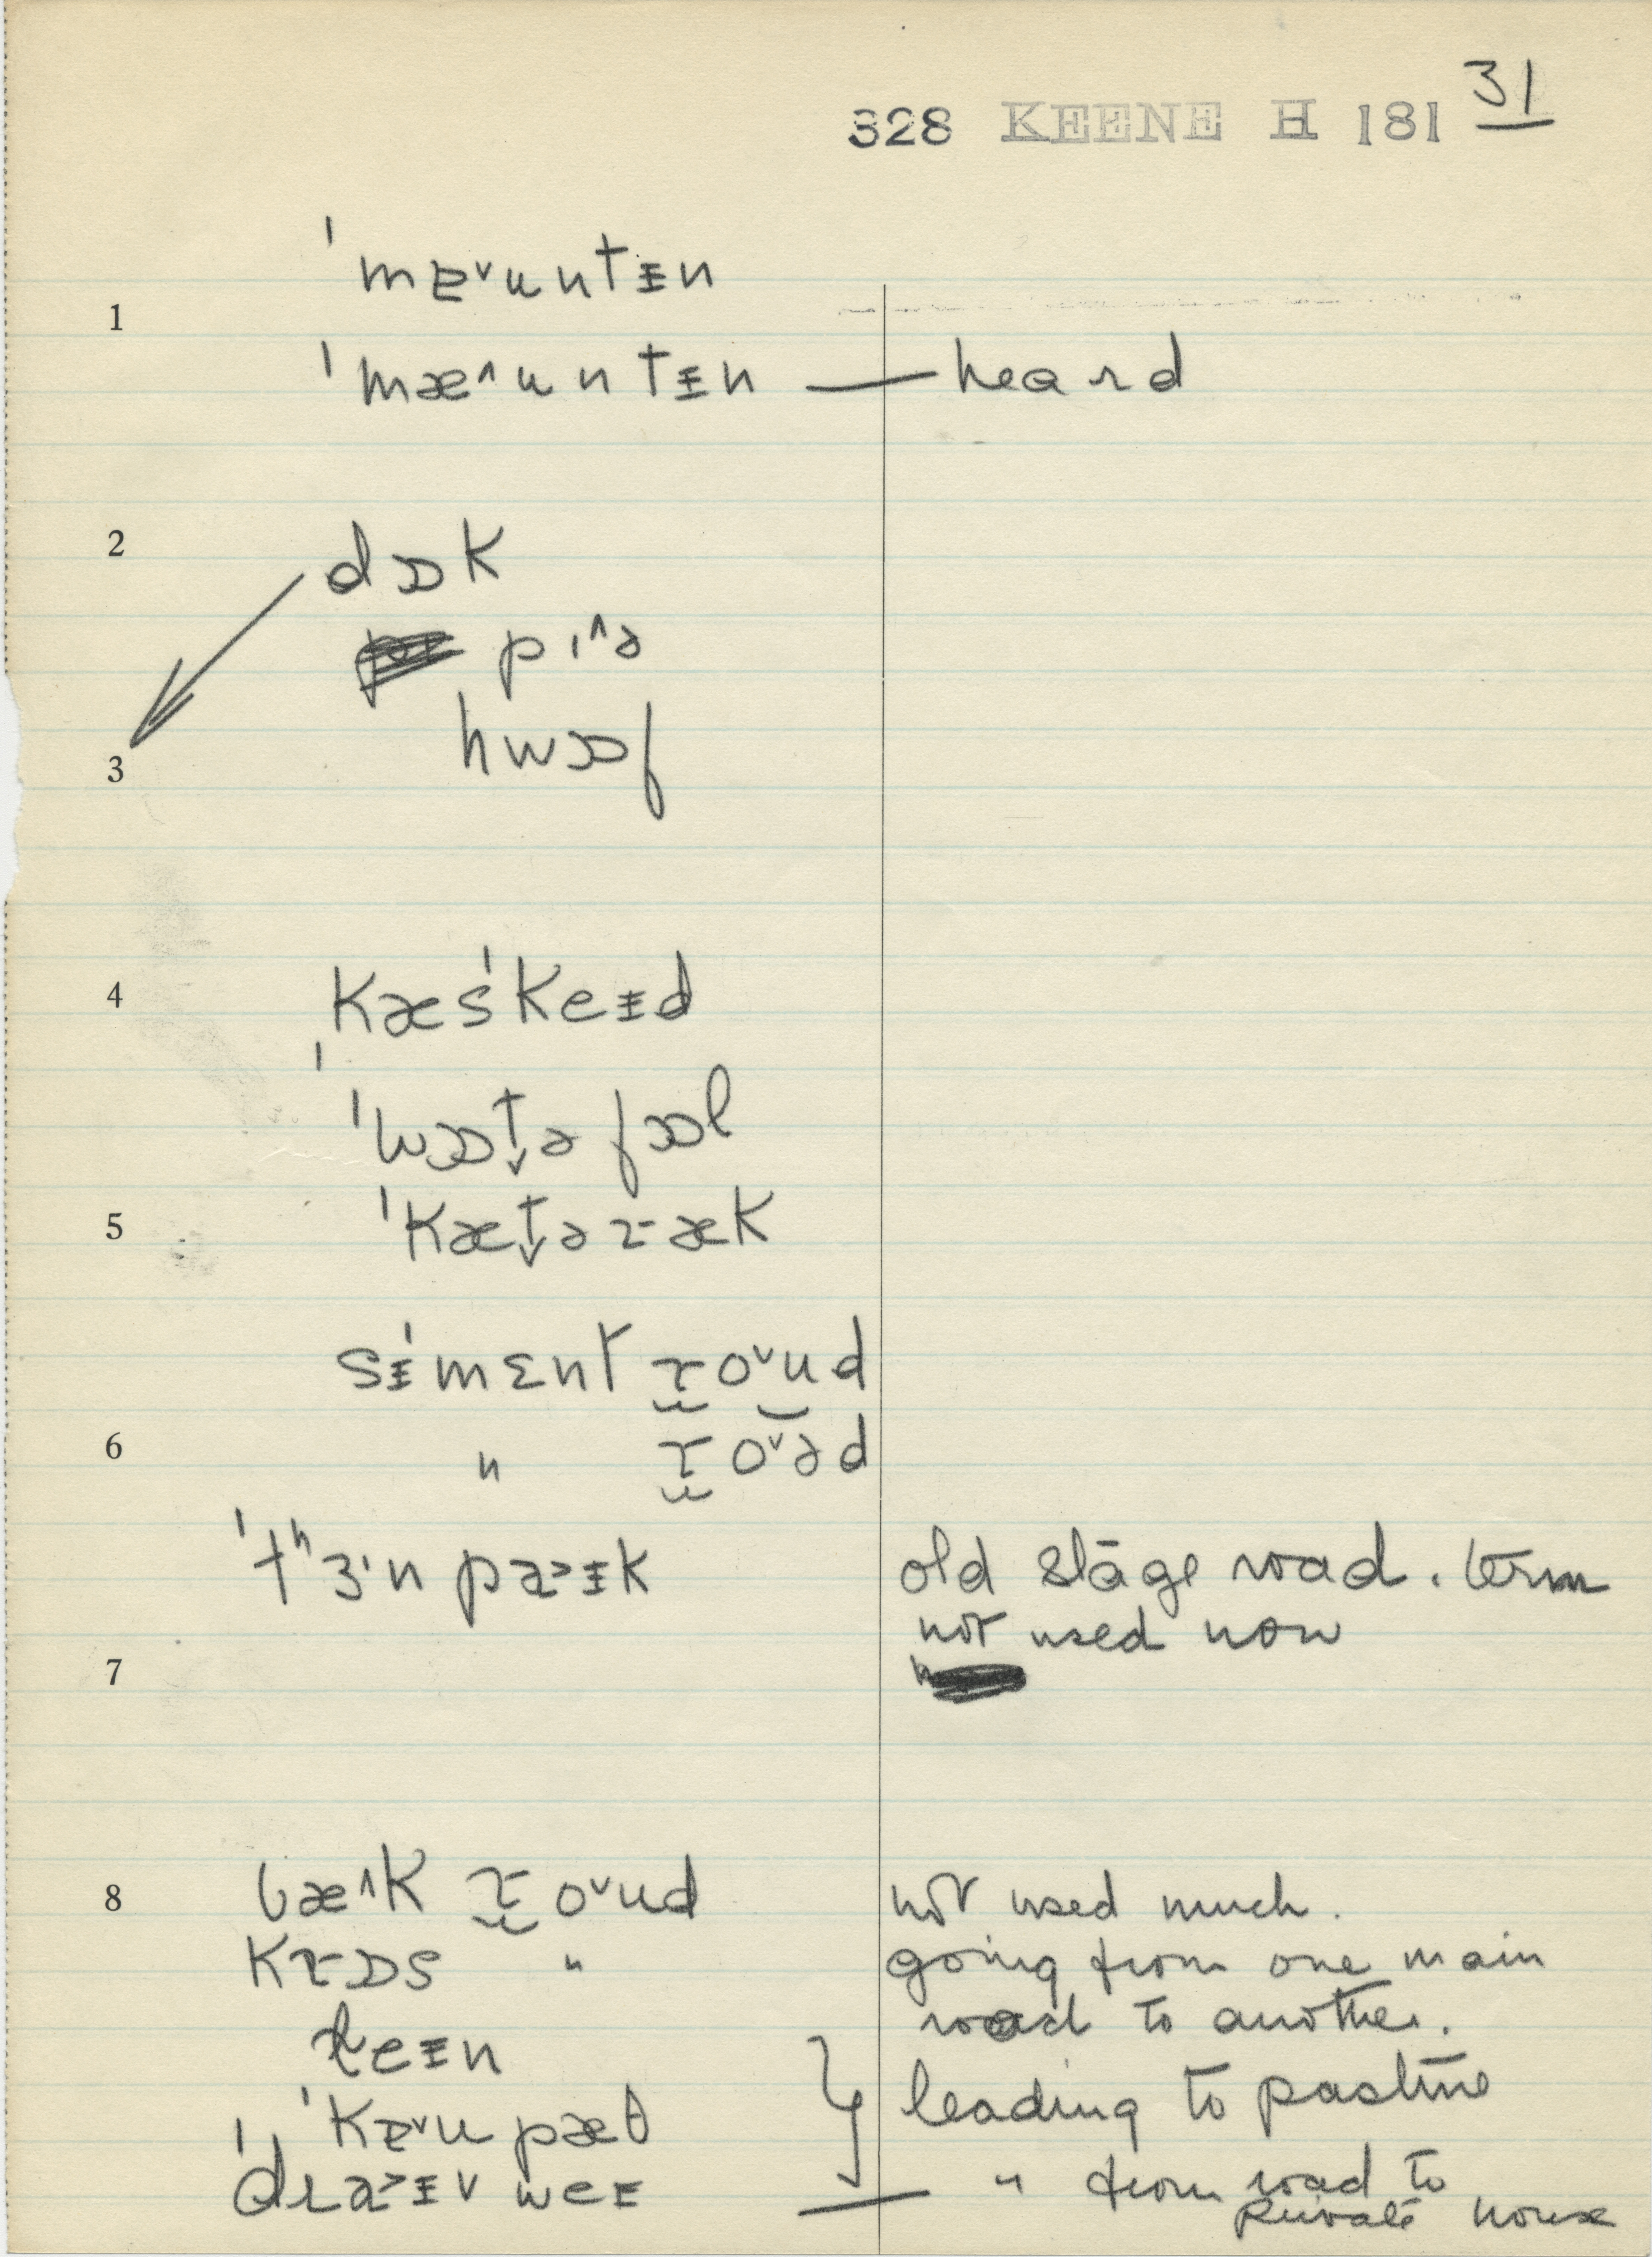 328 KEENE H 181 31
ˈmɐ˅untɪ̵n
1
ˈmæ˄untɪ̵n — heard
2
dɒk
pɪ˄ə
3
hwɒf
4
Kæsˈkeɪ̵d
ˈwɒt̬ə fɒl
5
ˈKæt̬əræk
sɪ̵ˈment ro˅ud
6
" ro˅əd
ˈtʰɜ·n pa˃ɪ̵k
old stage road. term
not used now
7
8
bæ˄k ro˅ud
not used much.
Krɒs "
going from one main
road to another.
leɪ̵n
ˈKɐ˅u pæθ
leading to pasture
ˈdra˃ɪ̵v weɪ
" from road to
private house